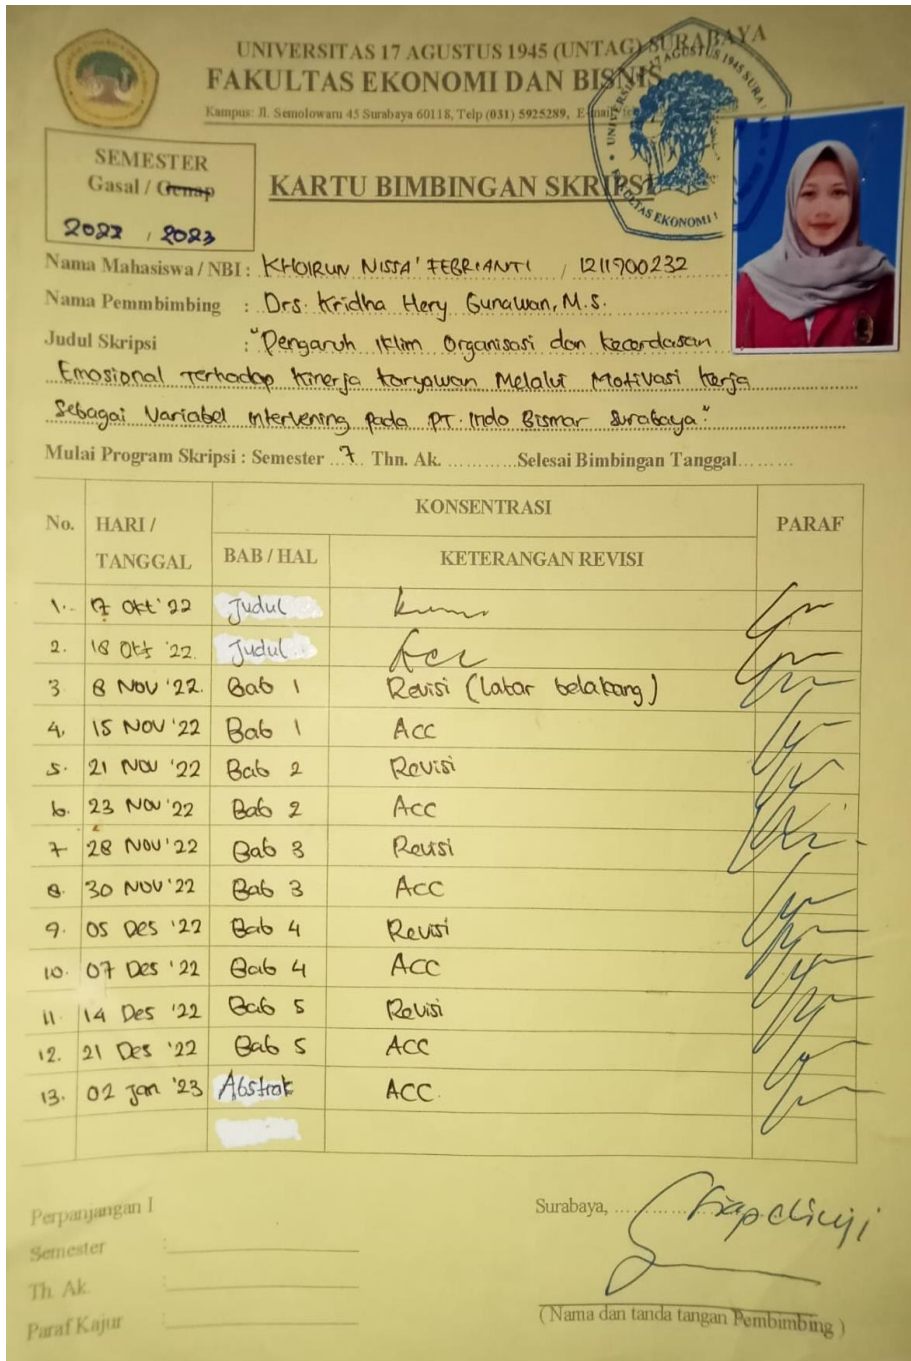 UNIVERSITAS 17 AGUSTUS 1945 (UNTAG) SURABAYA
FAKULTAS EKONOMI DAN BISNIS
Kampus: Jl. Semolowaru 45 Surabaya 60118, Telp (031) 5925289, E-mail
UNIVERSITAS 17 AGUSTUS 1945 SURA
FAKULTAS EKONOMI
SEMESTER
Gasal / Genap
2022 / 2023
KARTU BIMBINGAN SKRIPSI
Nama Mahasiswa / NBI : KHOIRUN NISSA' FEBRIANTI / 1211900232
Nama Pemmbimbing : Drs. Kridha Hery Gunawan, M.S.
Judul Skripsi : "Pengaruh Iklim Organisasi dan Kecerdasan
Emosional Terhadap Kinerja Karyawan Melalui Motivasi Kerja
Sebagai Variabel Intervening Pada PT. Indo Bismar Surabaya."
Mulai Program Skripsi : Semester 7 Thn. Ak. .............Selesai Bimbingan Tanggal.........
No. HARI / TANGGAL KONSENTRASI PARAF
BAB / HAL KETERANGAN REVISI
1. 17 Okt '22 Judul
2. 18 Okt '22. Judul Acc
3 8 Nov '22. Bab 1 Revisi (latar belakang)
4. 15 Nov '22 Bab 1 Acc
5. 21 Nov '22 Bab 2 Revisi
6. 23 Nov '22 Bab 2 Acc
7 28 Nov '22 Bab 3 Revisi
8. 30 Nov '22 Bab 3 Acc
9. 05 Des '22 Bab 4 Revisi
10. 07 Des '22 Bab 4 Acc
11. 14 Des '22 Bab 5 Revisi
12. 21 Des '22 Bab 5 Acc
13. 02 Jan '23 Abstrak Acc.
Perpanjangan I
Semester :
Th. Ak. :
Paraf Kajur :
Surabaya, ..........
Siap diuji
( Nama dan tanda tangan Pembimbing )